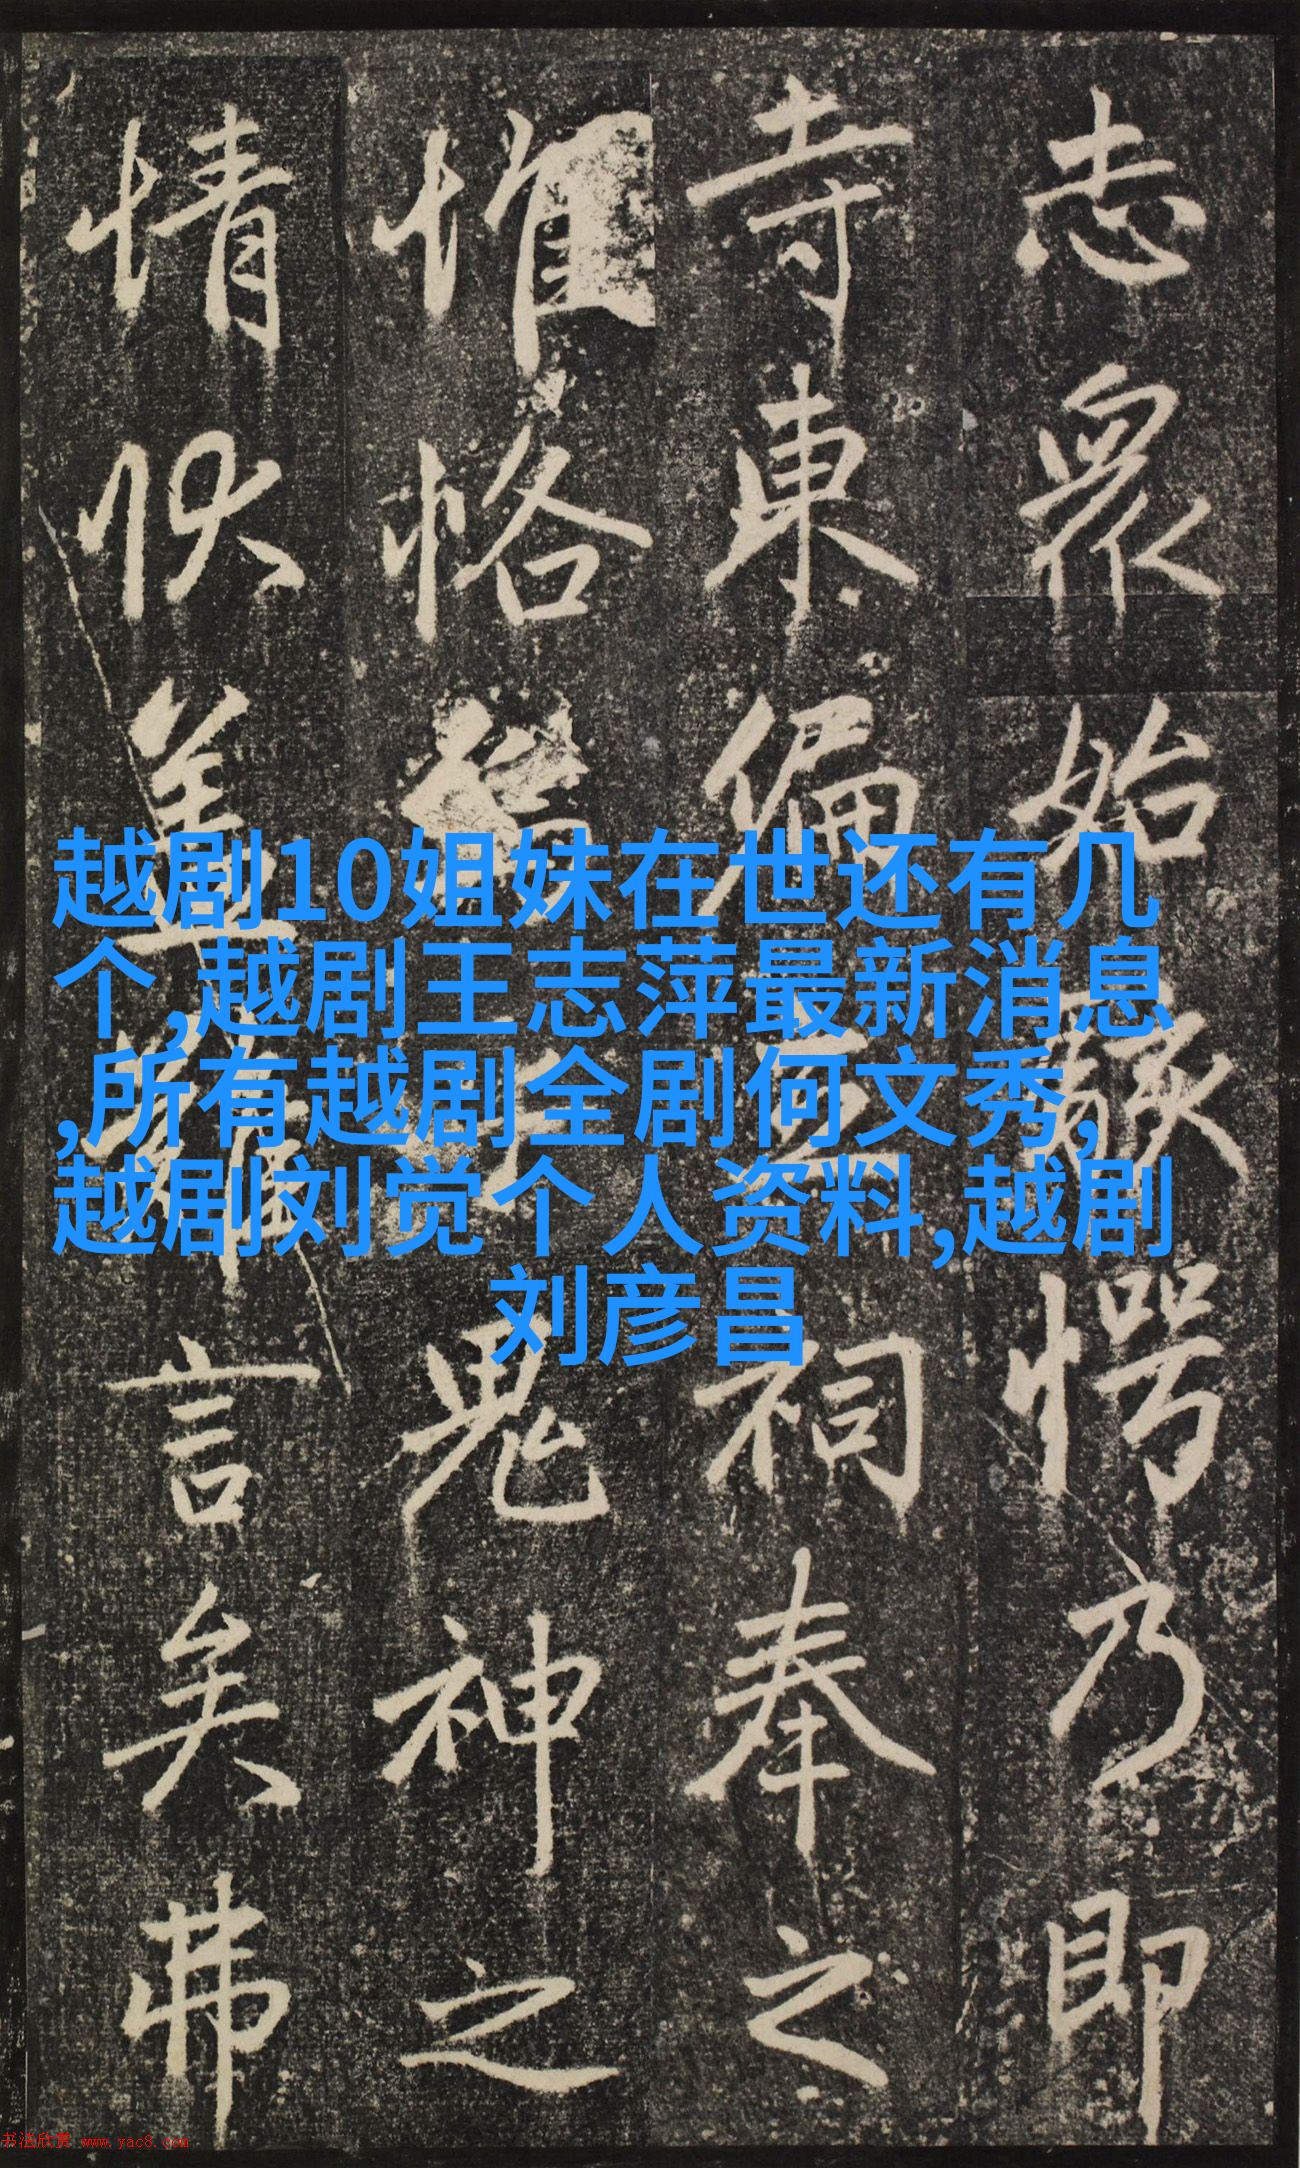 志眾始駭愕乃即
寺東偏立祠奉之
惟恪 鬼神之
情伏蓋難言矣弗
越剧10姐妹在世还有几
个,越剧王志萍最新消息
,所有越剧全剧何文秀,
越剧刘觉个人资料,越剧
刘彦昌
书法欣赏 www.yac8.com